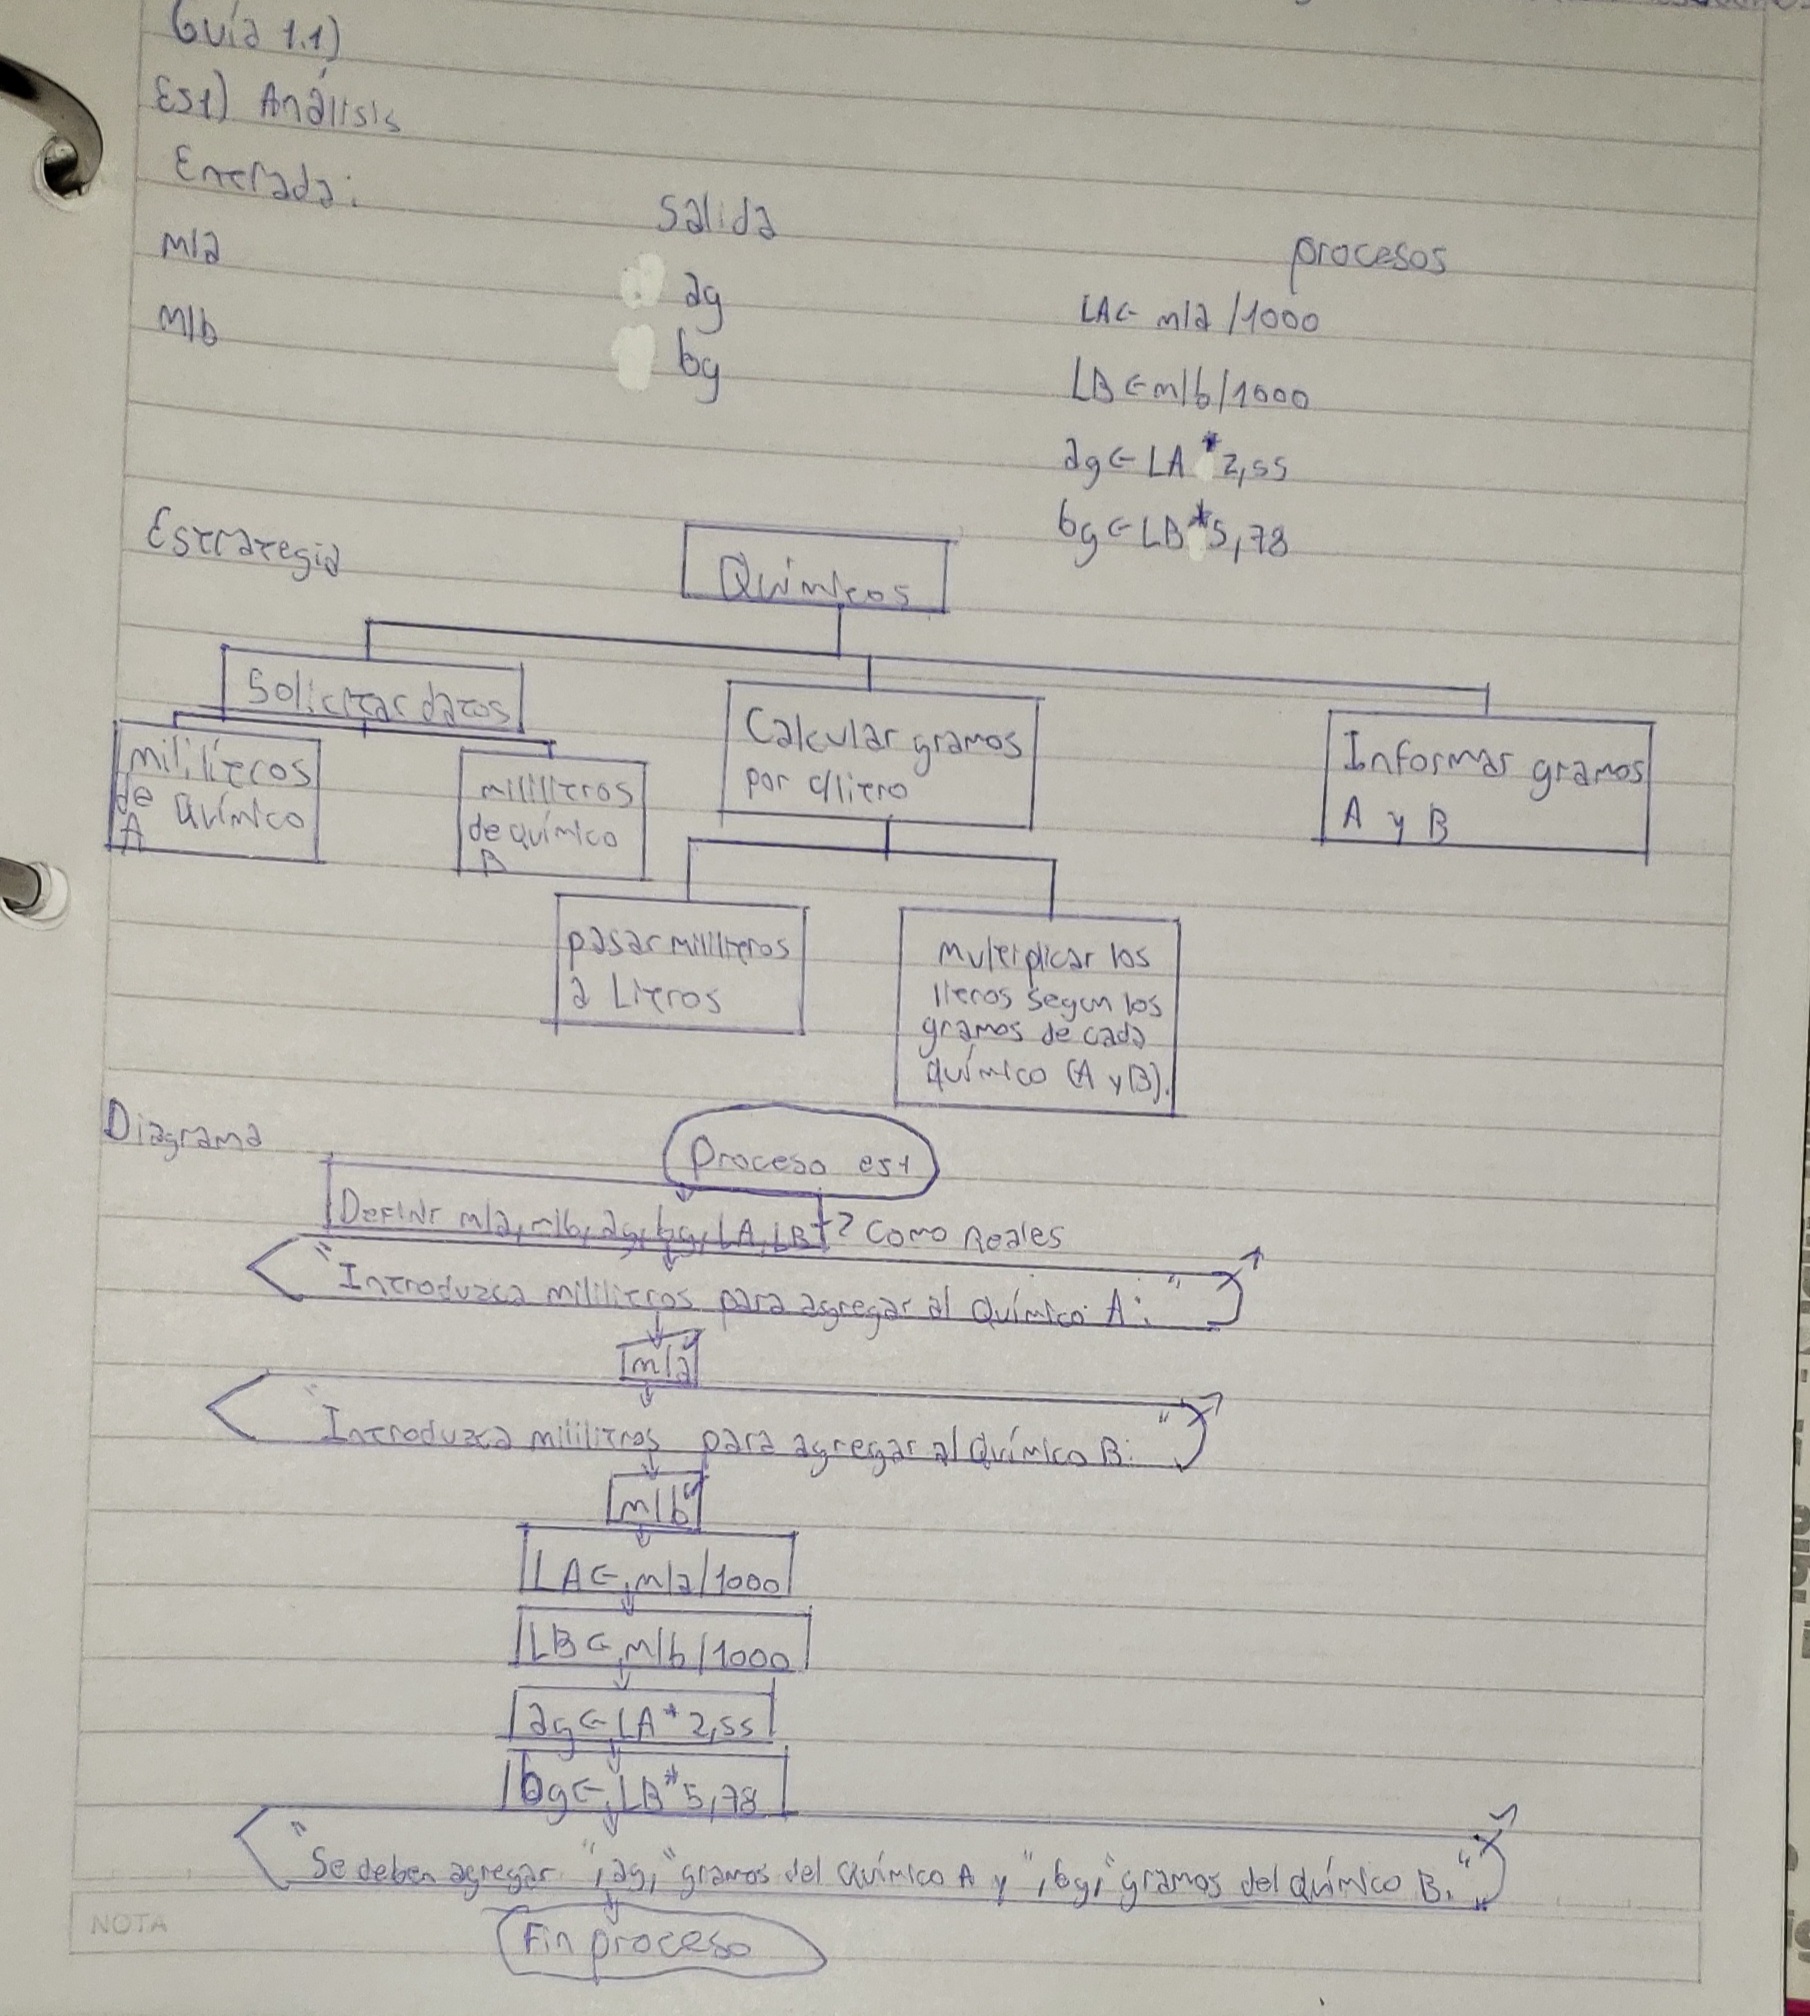 Guía 1.1)
Es1) Análisis
Entrada:
Salida
procesos
mla
mlb
ag
bg
LA← mla/1000
LB←mlb/1000
ag← LA*2,55
bg← LB*5,78
Estrategia
Químicos
Solicitar datos
Calcular gramos
por c/litro
Informar gramos
A y B
mililitros
de químico
A
mililitros
de químico
B
pasar mililitros
a Litros
Multiplicar los
litros segun los
gramos de cada
químico (A y B).
Diagrama
Proceso es1
Definir mla, mlb, ag, bg, LA, LB Como Reales
"Introduzca mililitros para agregar al Químico A: "
mla
"Introduzca mililitros para agregar al Químico B: "
mlb
LA← mla/1000
LB← mlb/1000
ag← LA*2,55
bg← LB*5,78
"Se deben agregar ", ag, "gramos del químico A y ", bg, "gramos del químico B."
Fin proceso
NOTA